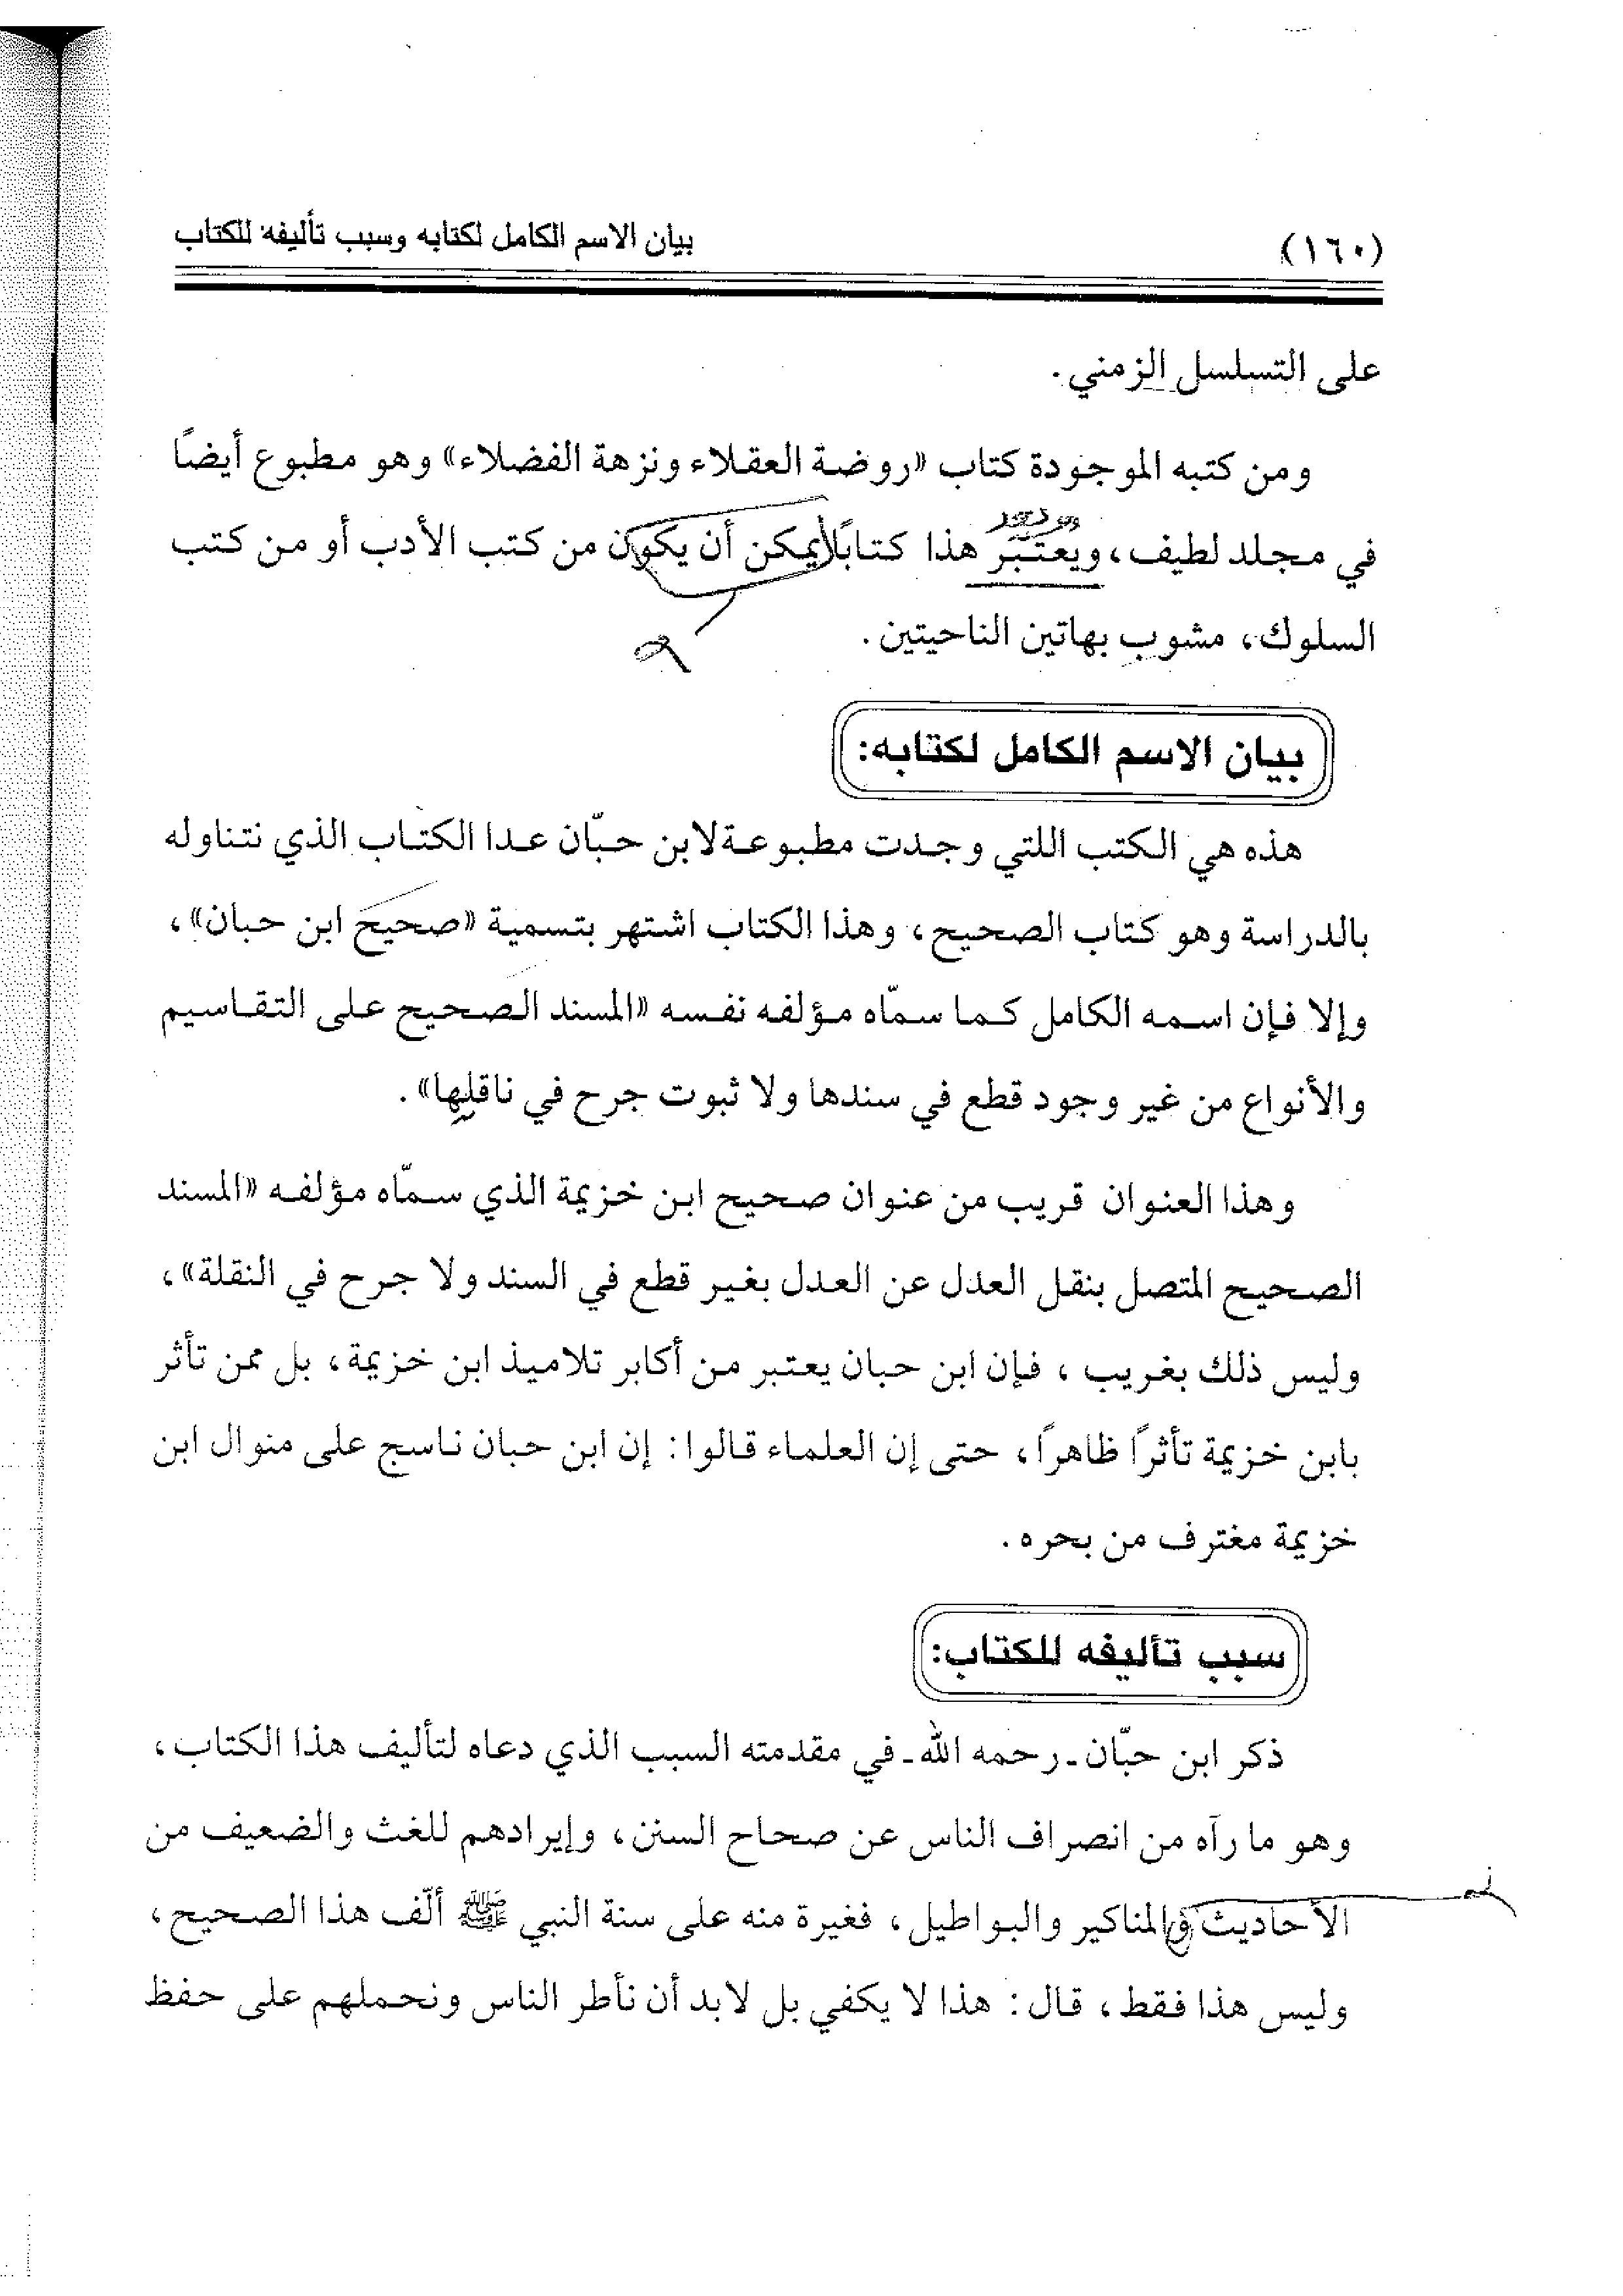 (١٦٠)
بيان الاسم الكامل لكتابه وسبب تأليفه للكتاب
على التسلسل الزمني.
ومن كتبه الموجودة كتاب «روضة العقلاء ونزهة الفضلاء» وهو مطبوع أيضًا
في مجلد لطيف، ويعتبر هذا كتابًا يمكن أن يكون من كتب الأدب أو من كتب
السلوك، مشوب بهاتين الناحيتين.
بيان الاسم الكامل لكتابه:
هذه هي الكتب اللتي وجدت مطبوعة لابن حبّان عدا الكتاب الذي نتناوله
بالدراسة وهو كتاب الصحيح، وهذا الكتاب اشتهر بتسمية «صحيح ابن حبان»،
وإلا فإن اسمه الكامل كما سمّاه مؤلفه نفسه «المسند الصحيح على التقاسيم
والأنواع من غير وجود قطع في سندها ولا ثبوت جرح في ناقلها».
وهذا العنوان قريب من عنوان صحيح ابن خزيمة الذي سمّاه مؤلفه «المسند
الصحيح المتصل بنقل العدل عن العدل بغير قطع في السند ولا جرح في النقلة»،
وليس ذلك بغريب، فإن ابن حبان يعتبر من أكابر تلاميذ ابن خزيمة، بل ممن تأثر
بابن خزيمة تأثرًا ظاهرًا، حتى إن العلماء قالوا: إن ابن حبان ناسج على منوال ابن
خزيمة مغترف من بحره.
سبب تأليفه للكتاب:
ذكر ابن حبّان ـ رحمه الله ـ في مقدمته السبب الذي دعاه لتأليف هذا الكتاب،
وهو ما رآه من انصراف الناس عن صحاح السنن، وإيرادهم للغث والضعيف من
الأحاديث والمناكير والبواطيل، فغيرة منه على سنة النبي ﷺ ألّف هذا الصحيح،
وليس هذا فقط، قال: هذا لا يكفي بل لابد أن نأطر الناس ونحملهم على حفظ